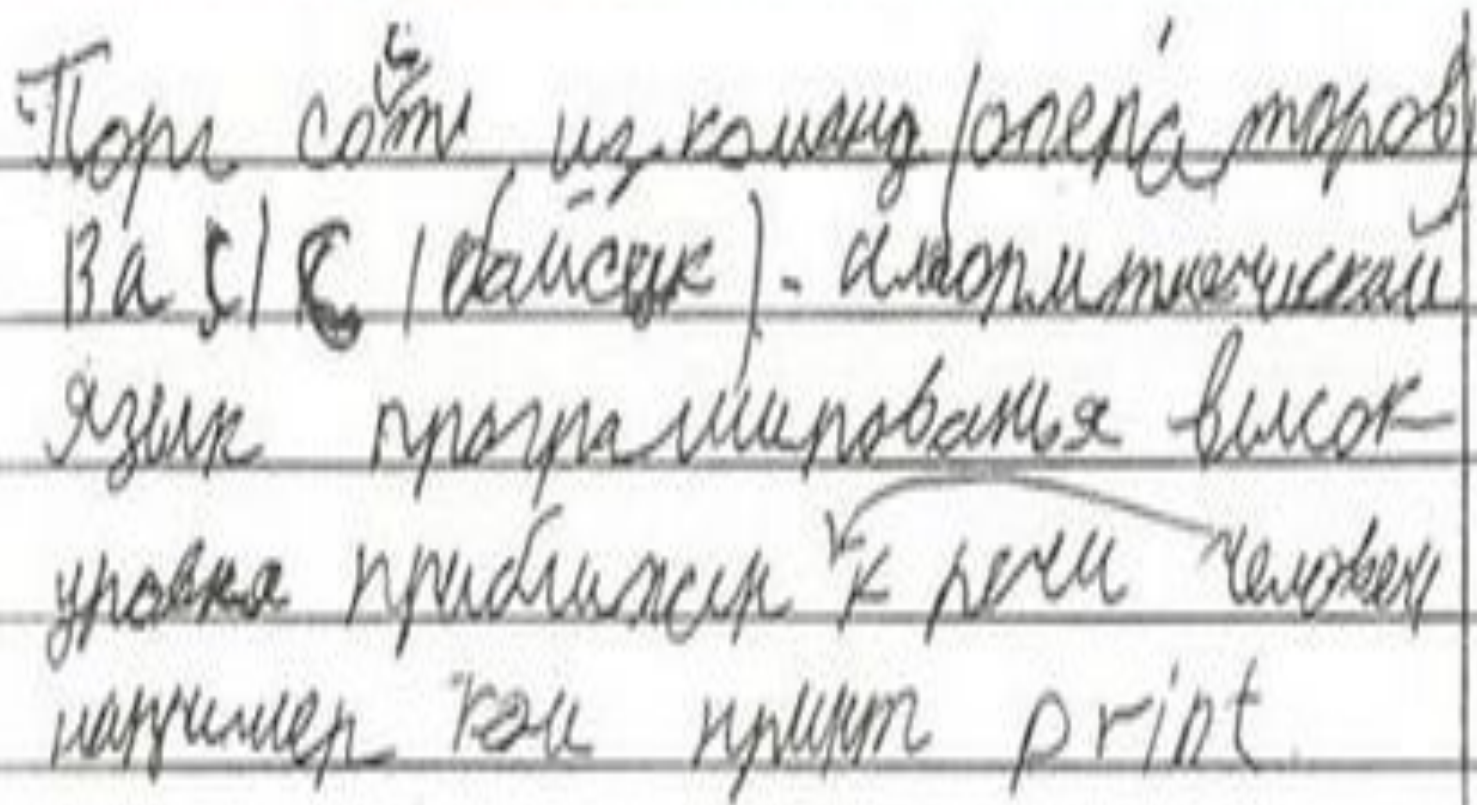 Порг сот из команд/операторов
BaSIC (байсик). алгоритмический
язык программированья высок
уровня приближен к речи человек
например как принт print.